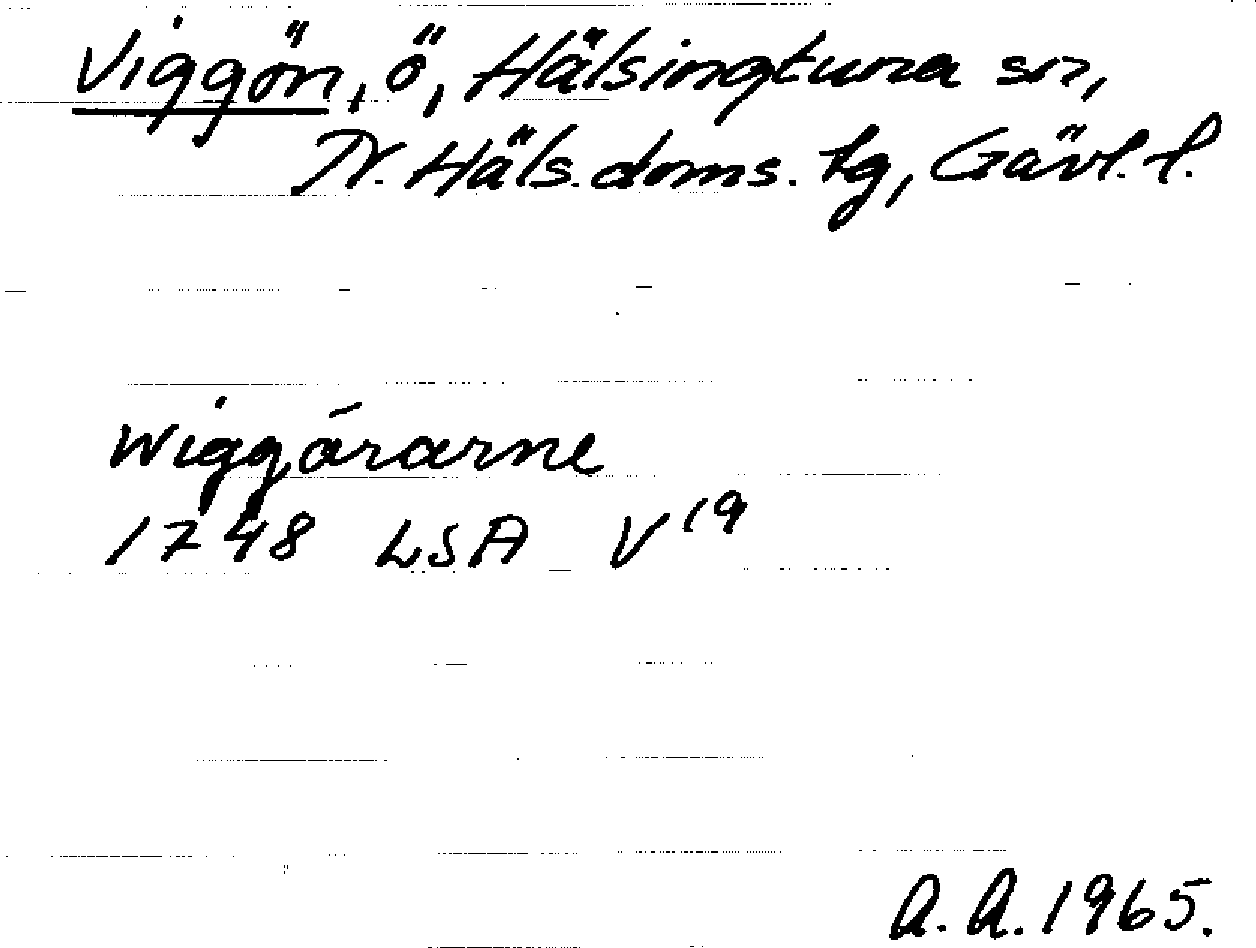 Viggön, ö, Hälsingtuna sn,
N. Häls. doms. tg, Gävl. l.
Wiggárarne
1748 LSA V 19
A. A. 1965.